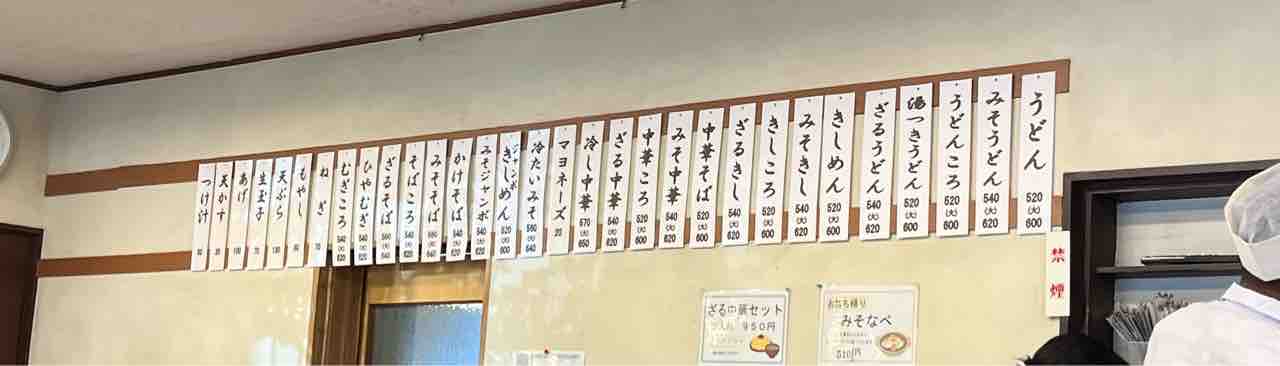 うどん 520 (大) 600
みそうどん 540 (大) 620
うどんころ 520 (大) 600
湯つきうどん 520 (大) 600
ざるうどん 540 (大) 620
きしめん 520 (大) 600
みそきし 540 (大) 620
きしころ 520 (大) 600
ざるきし 540 (大) 620
中華そば 520 (大) 600
みそ中華 540 (大) 620
中華ころ 520 (大) 600
ざる中華 540 (大) 620
冷し中華 570 (大) 650
マヨネーズ 20
冷たいみそ 560 (大) 640
ジャンボきしめん 520 (大) 600
みそジャンボ 540 (大) 620
かけそば 540 (大) 620
みそそば 560 (大) 640
そばころ 540 (大) 620
ざるそば 560 (大) 640
ひやむぎ 540 (大) 620
むぎころ 540 (大) 620
ねぎ
もやし
天ぷら
生玉子
あげ
天かす
つけ汁
禁煙
ざる中華セット
950円
お持ち帰り
みそなべ
510円